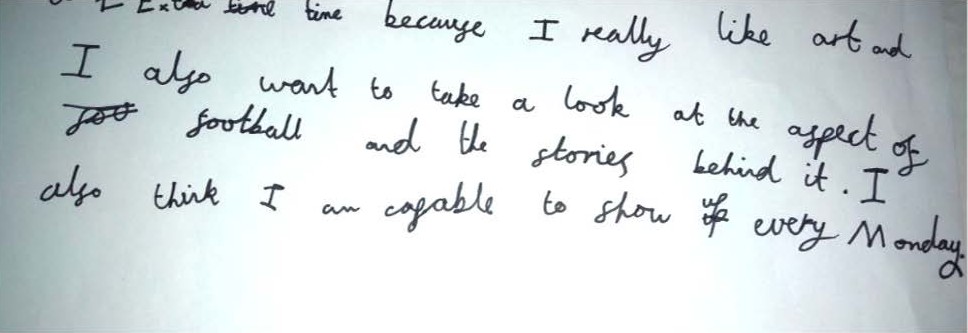 Extra time because I really like art and
I also want to take a look at the aspect of
football and the stories behind it. I
also think I am capable to show up every Monday.